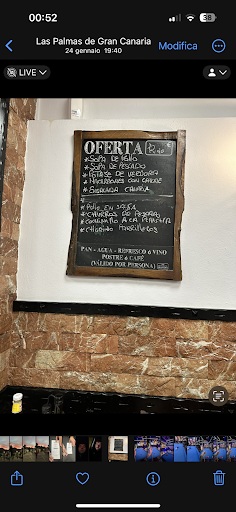 00:52
38
Las Palmas de Gran Canaria
24 gennaio 19:40
Modifica
LIVE
OFERTA
*SOPA DE POLLO
*SOPA DE PESCADO
*POTAJE DE VERDURA
*MACARRONES CON CARNE
*ENSALADA
*POLLO EN SALSA
*CHURROS DE PESCADO
A LA PLANCHA
PAN - AGUA - REFRESCO ó VINO
POSTRE ó CAFÉ
(VÁLIDO POR PERSONA)